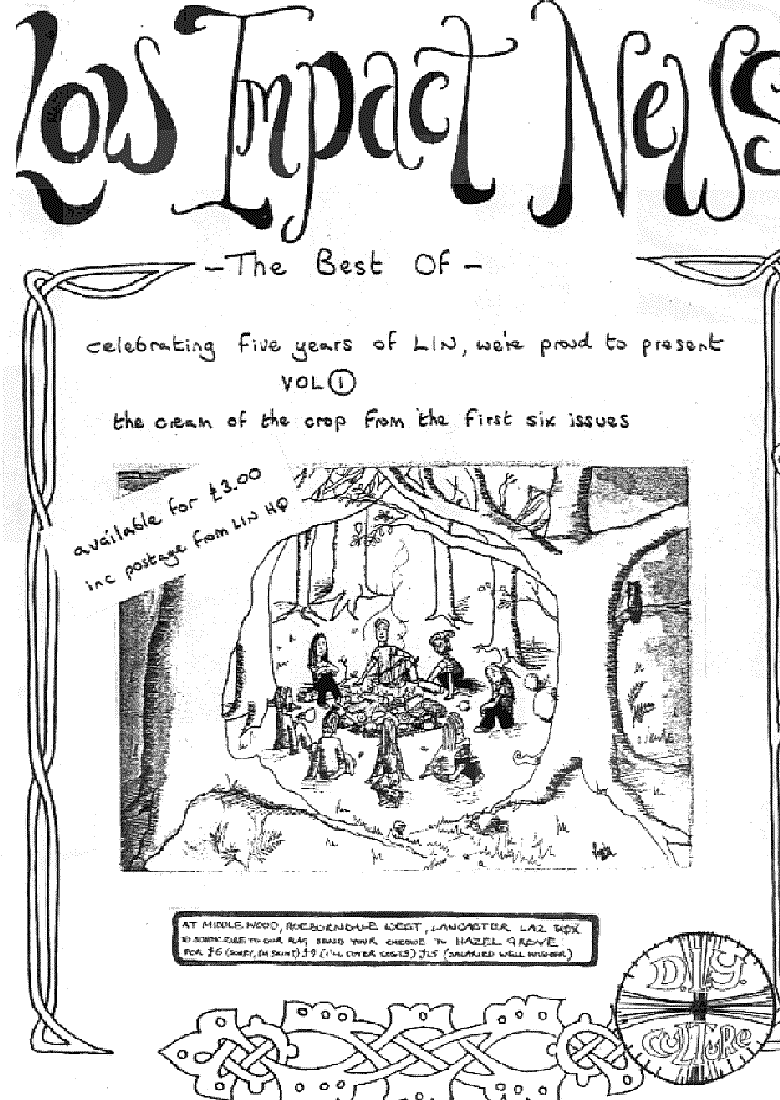 Low Impact News
- The Best Of -
celebrating five years of LIN, we're proud to present
VOL 1
the cream of the crop from the first six issues
available for £3.00
inc postage from LIN HQ
AT MIDDLE WOOD, ROEBURNDALE WEST, LANCASTER LA2
TO SUBSCRIBE TO OUR MAG SEND YOUR CHEQUE TO HAZEL
FOR £6 (SORRY, I'M SKINT) £9 (I'LL COVER COSTS) £15 (SALARIED WELL WISHER)
D.I.Y.
CULTURE